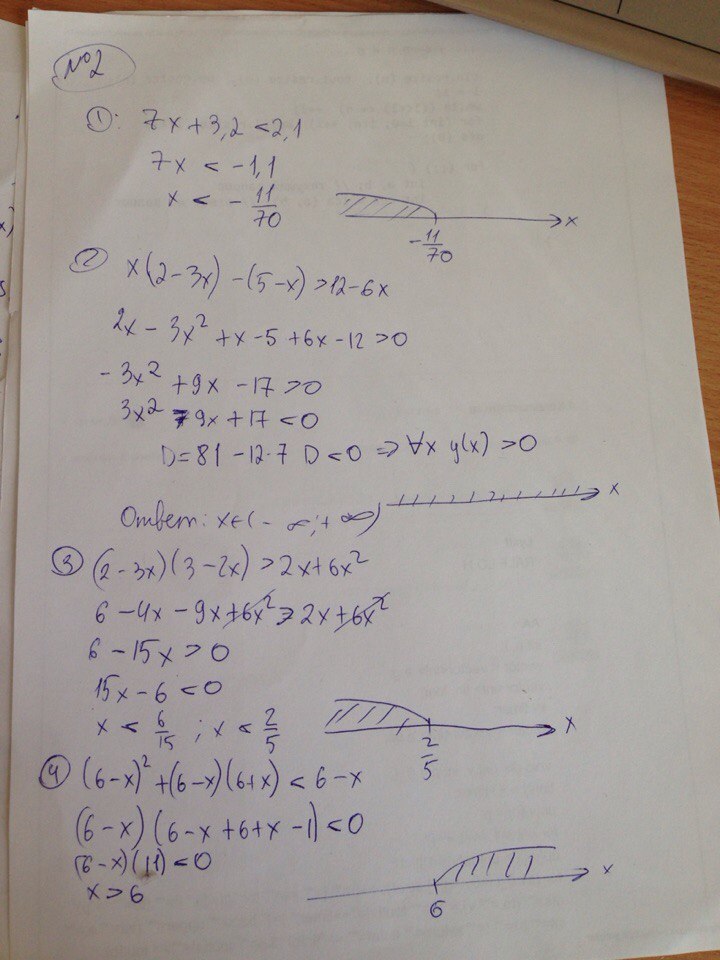 №2
① : 7x + 3,2 < 2,1
7x < -1,1
x < - 11/70
-11/70 x
② x(2-3x) -(5-x) > 12-6x
2x - 3x² + x - 5 + 6x - 12 > 0
- 3x² + 9x - 17 > 0
3x² - 9x + 17 < 0
D = 81 - 12·7 D < 0 ⇒ ∀x y(x) > 0
Ответ: x∈(-∞;+∞) x
③ (2-3x)(3-2x) > 2x+6x²
6 - 4x - 9x + 6x² > 2x + 6x²
6 - 15x > 0
15x - 6 < 0
x < 6/15 ; x < 2/5
2/5 x
④ (6-x)² + (6-x)(6+x) < 6-x
(6-x)(6-x+6+x-1) < 0
(6-x)(11) < 0
x > 6
6 x